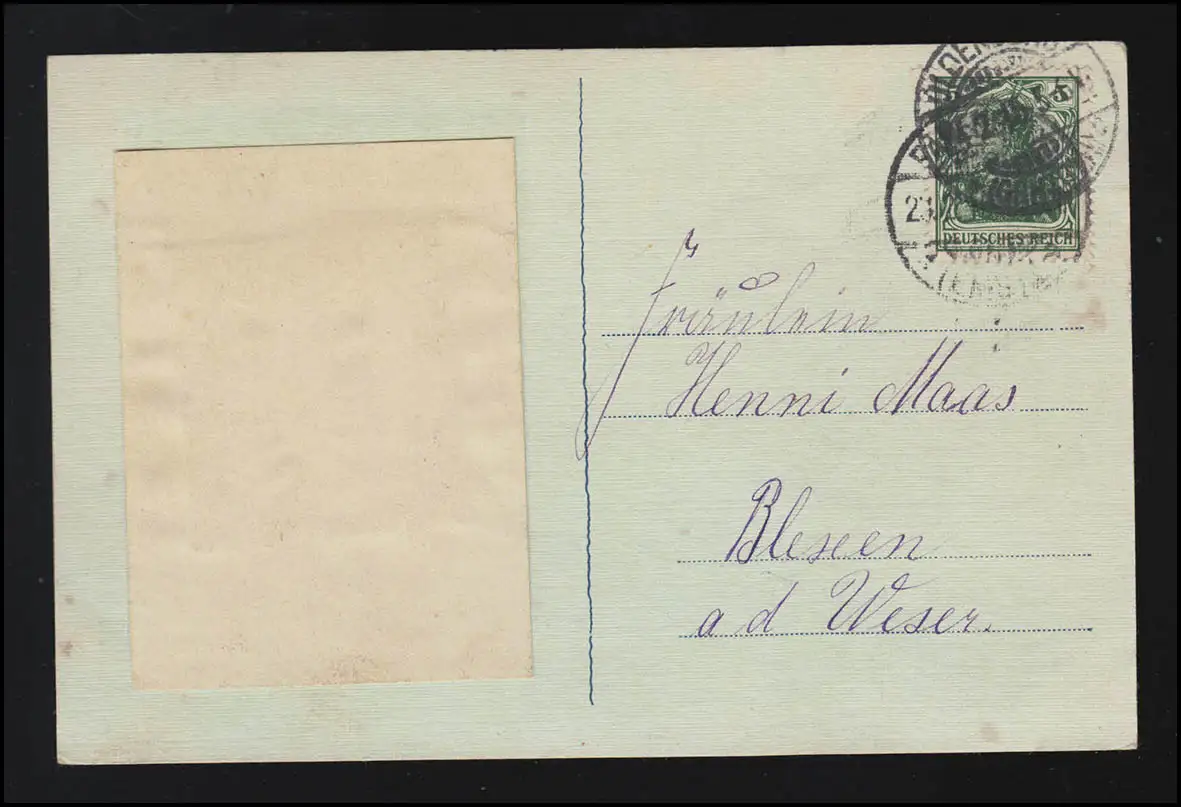 5
DEUTSCHES REICH
Fräulein
Henni Maas
Blexen
a d Weser.